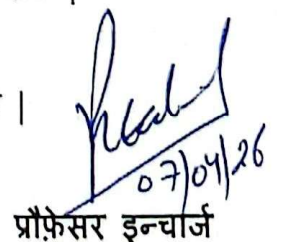 ।
07/04/26
प्रौफ़ेसर इन्चार्ज